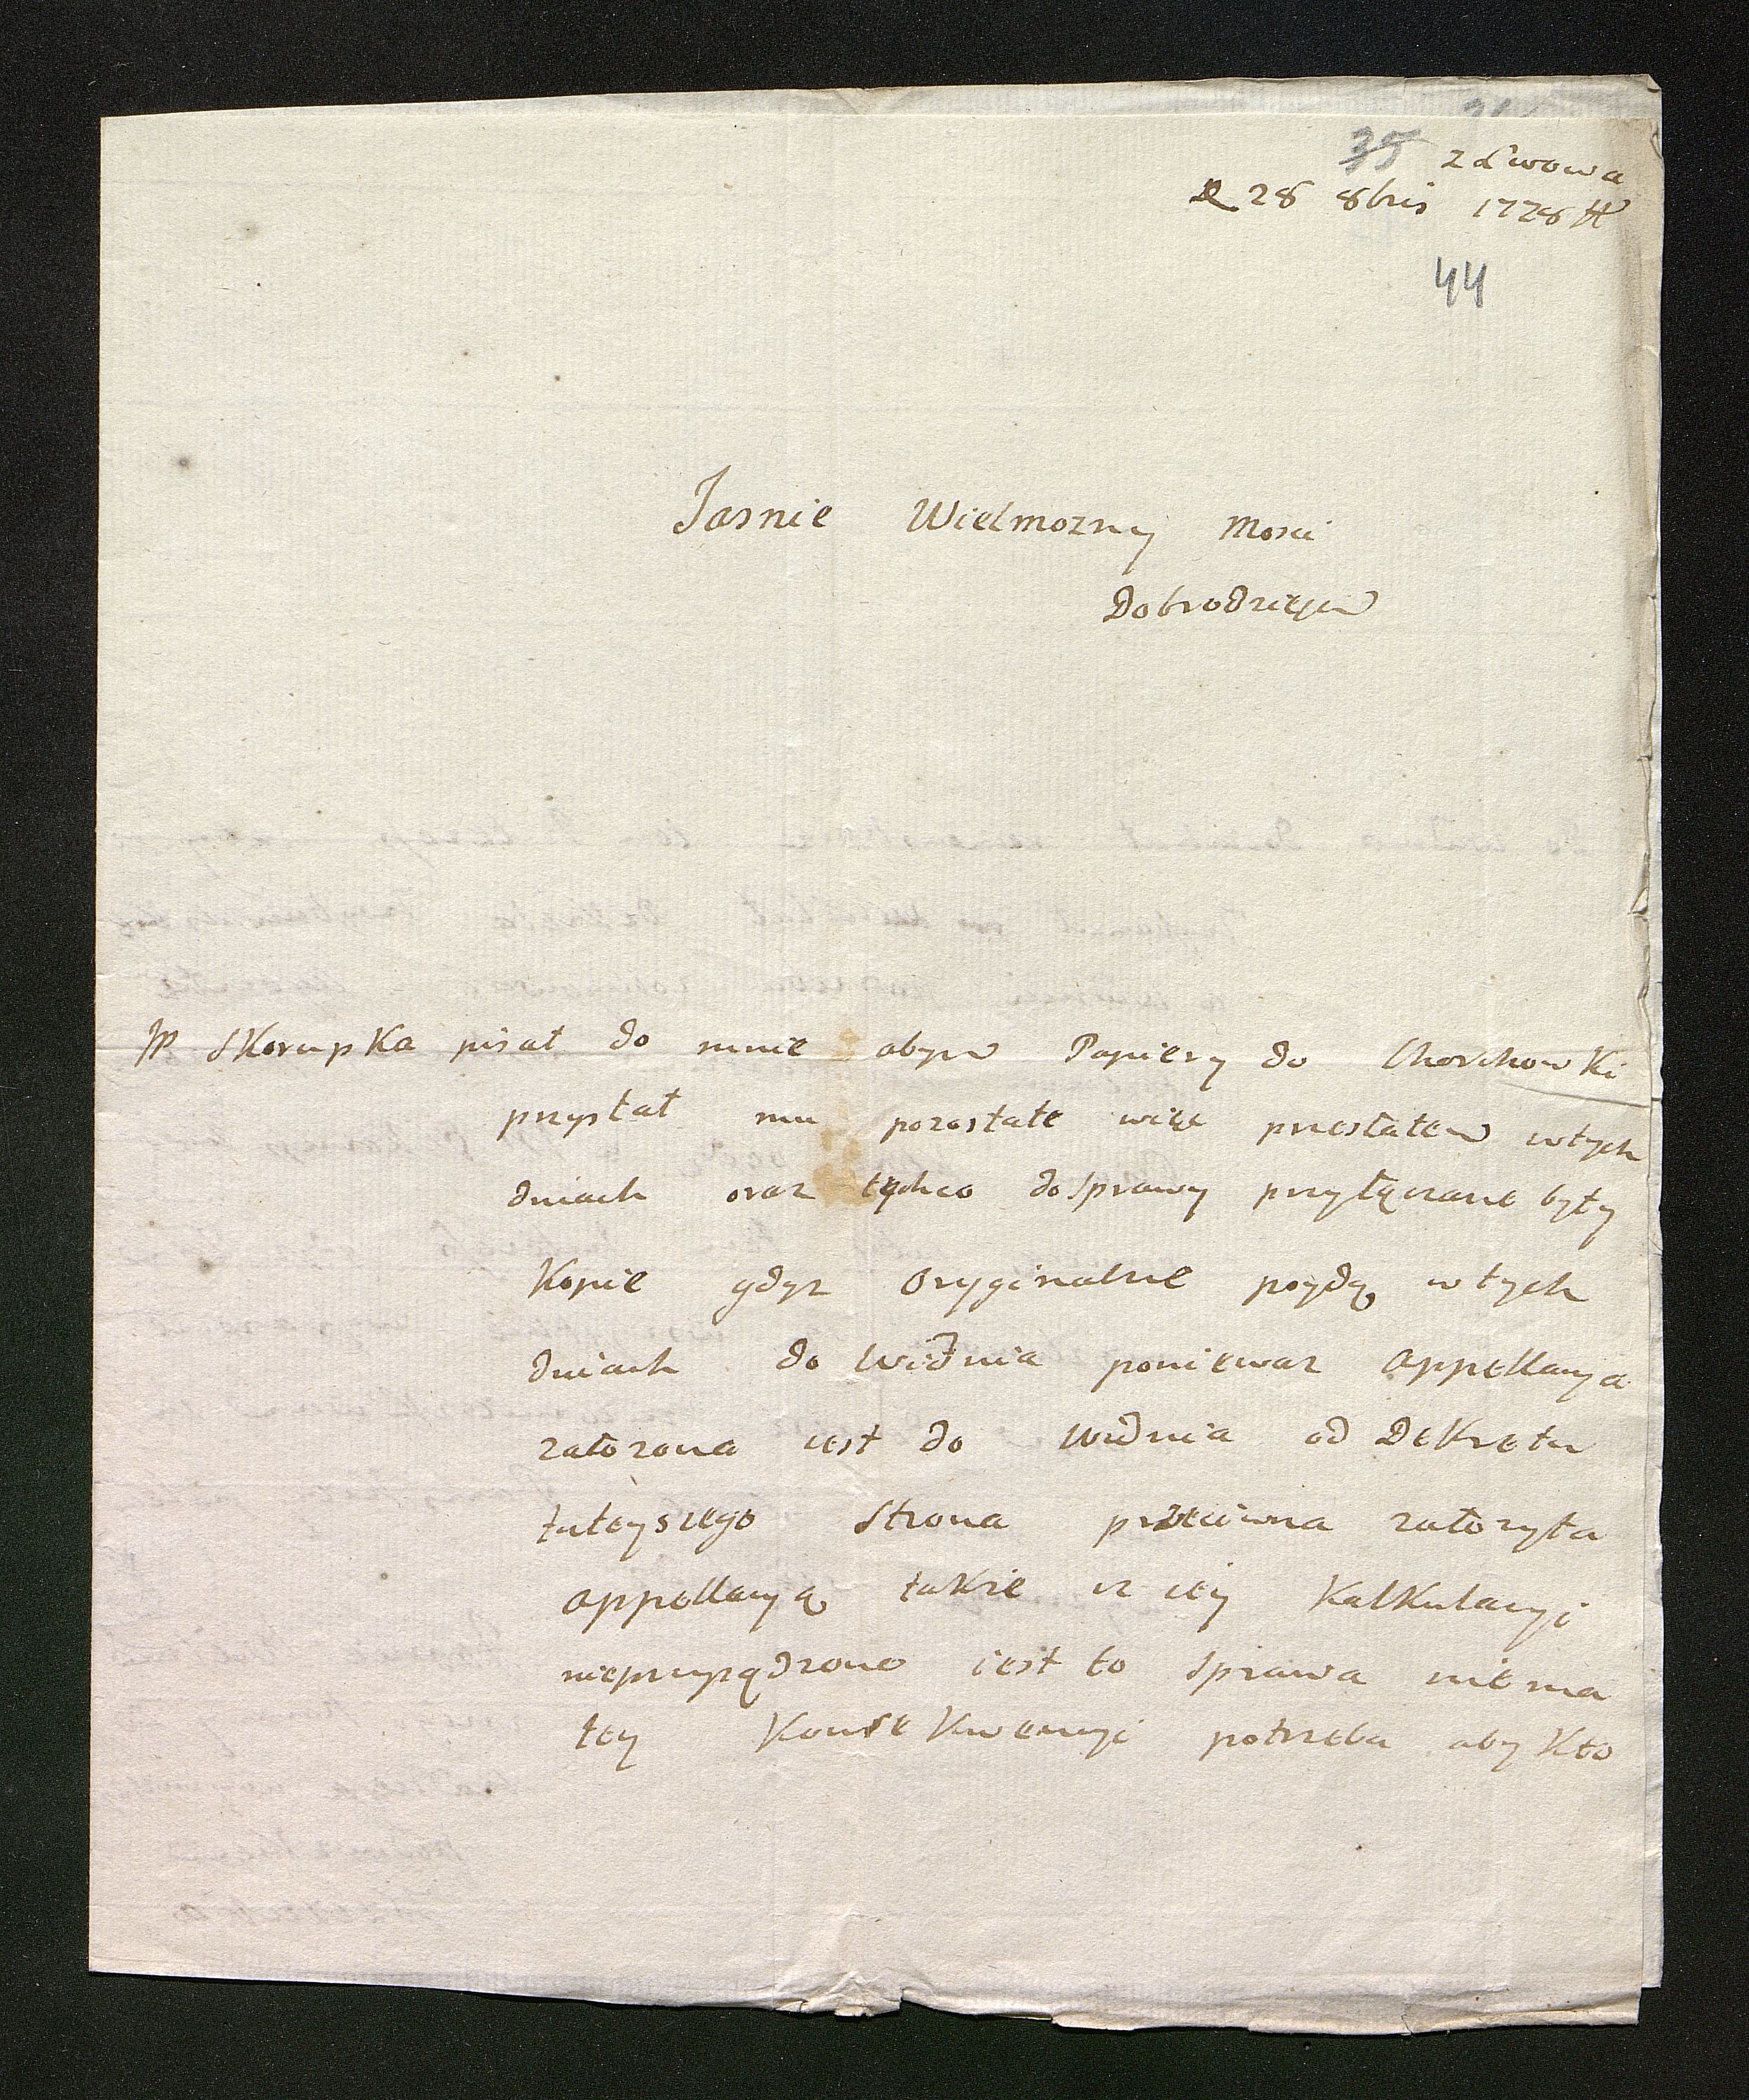 35 z Lwowa
D 28 8bris 1778 R
44
Jasnie Wielmozny Mosci
Dobrodzieju
JP Skorupka pisał do mnie abym Papiery do Chorchowki
przysłał mu pozostałe więc przesłałem wtych
dniach oraz tychco dosprawy przyłączane były
Kopie gdyz oryginalne poydą w tych
dniach do Widnia poniewaz appellacya
załozona iest do Widnia od Dekretu
tuteyszego Strona przeciwna załozyła
appellacyą takze iz iey Kalkulacyi
nieprzysądzono iest to sprawa nie ma
tey Konsekwencyi potrzeba aby Kto